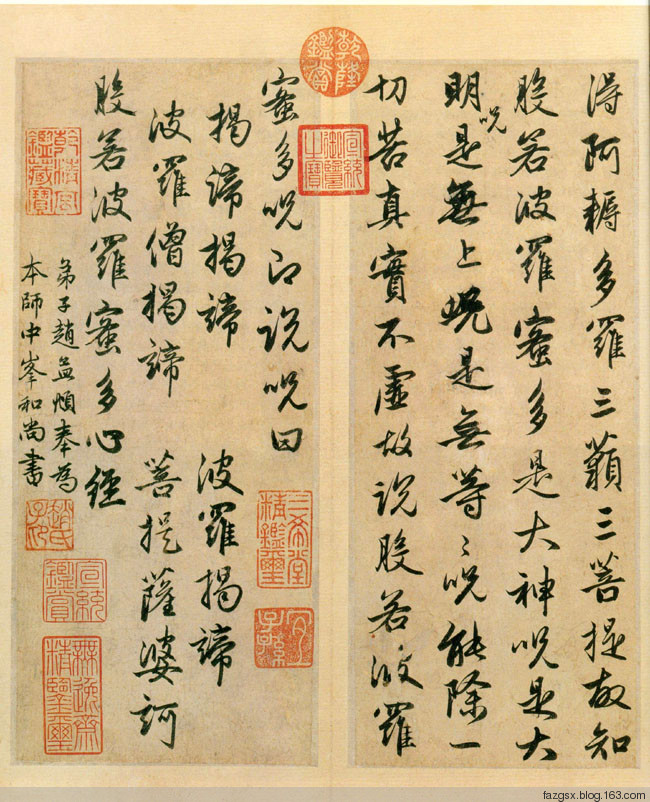 得阿耨多羅三藐三菩提故知
般若波羅蜜多是大神呪是大
明呪是無上呪是無等〻呪能除一
切苦真實不虛故説般若波羅
乾隆鑑賞
宣統御覽之寶
蜜多呪即説呪曰
三希堂精鑑璽
宜子孫
揭諦揭諦 波羅揭諦
波羅僧揭諦 菩提薩婆訶
般若波羅蜜多心經
弟子趙孟頫奉為
本師中峯和尚書
乾清宮鑑藏寶
趙氏子昂
宣統鑑賞
無逸齋精鑒璽
fazgsx.blog.163.com